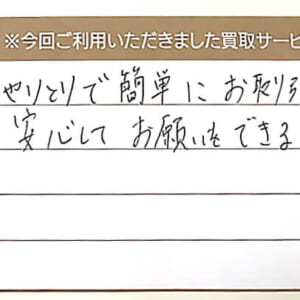 ※今回ご利用いただきました買取サービ
やりとりで簡単にお取引
安心してお願いをできる